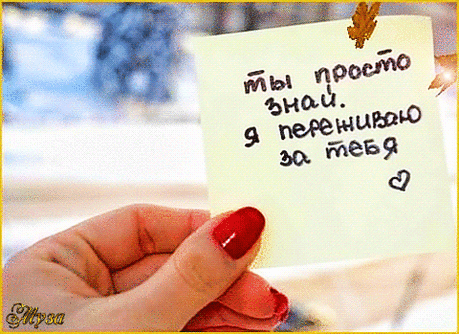 ты просто
знай.
я переживаю
за тебя
♡
Муза